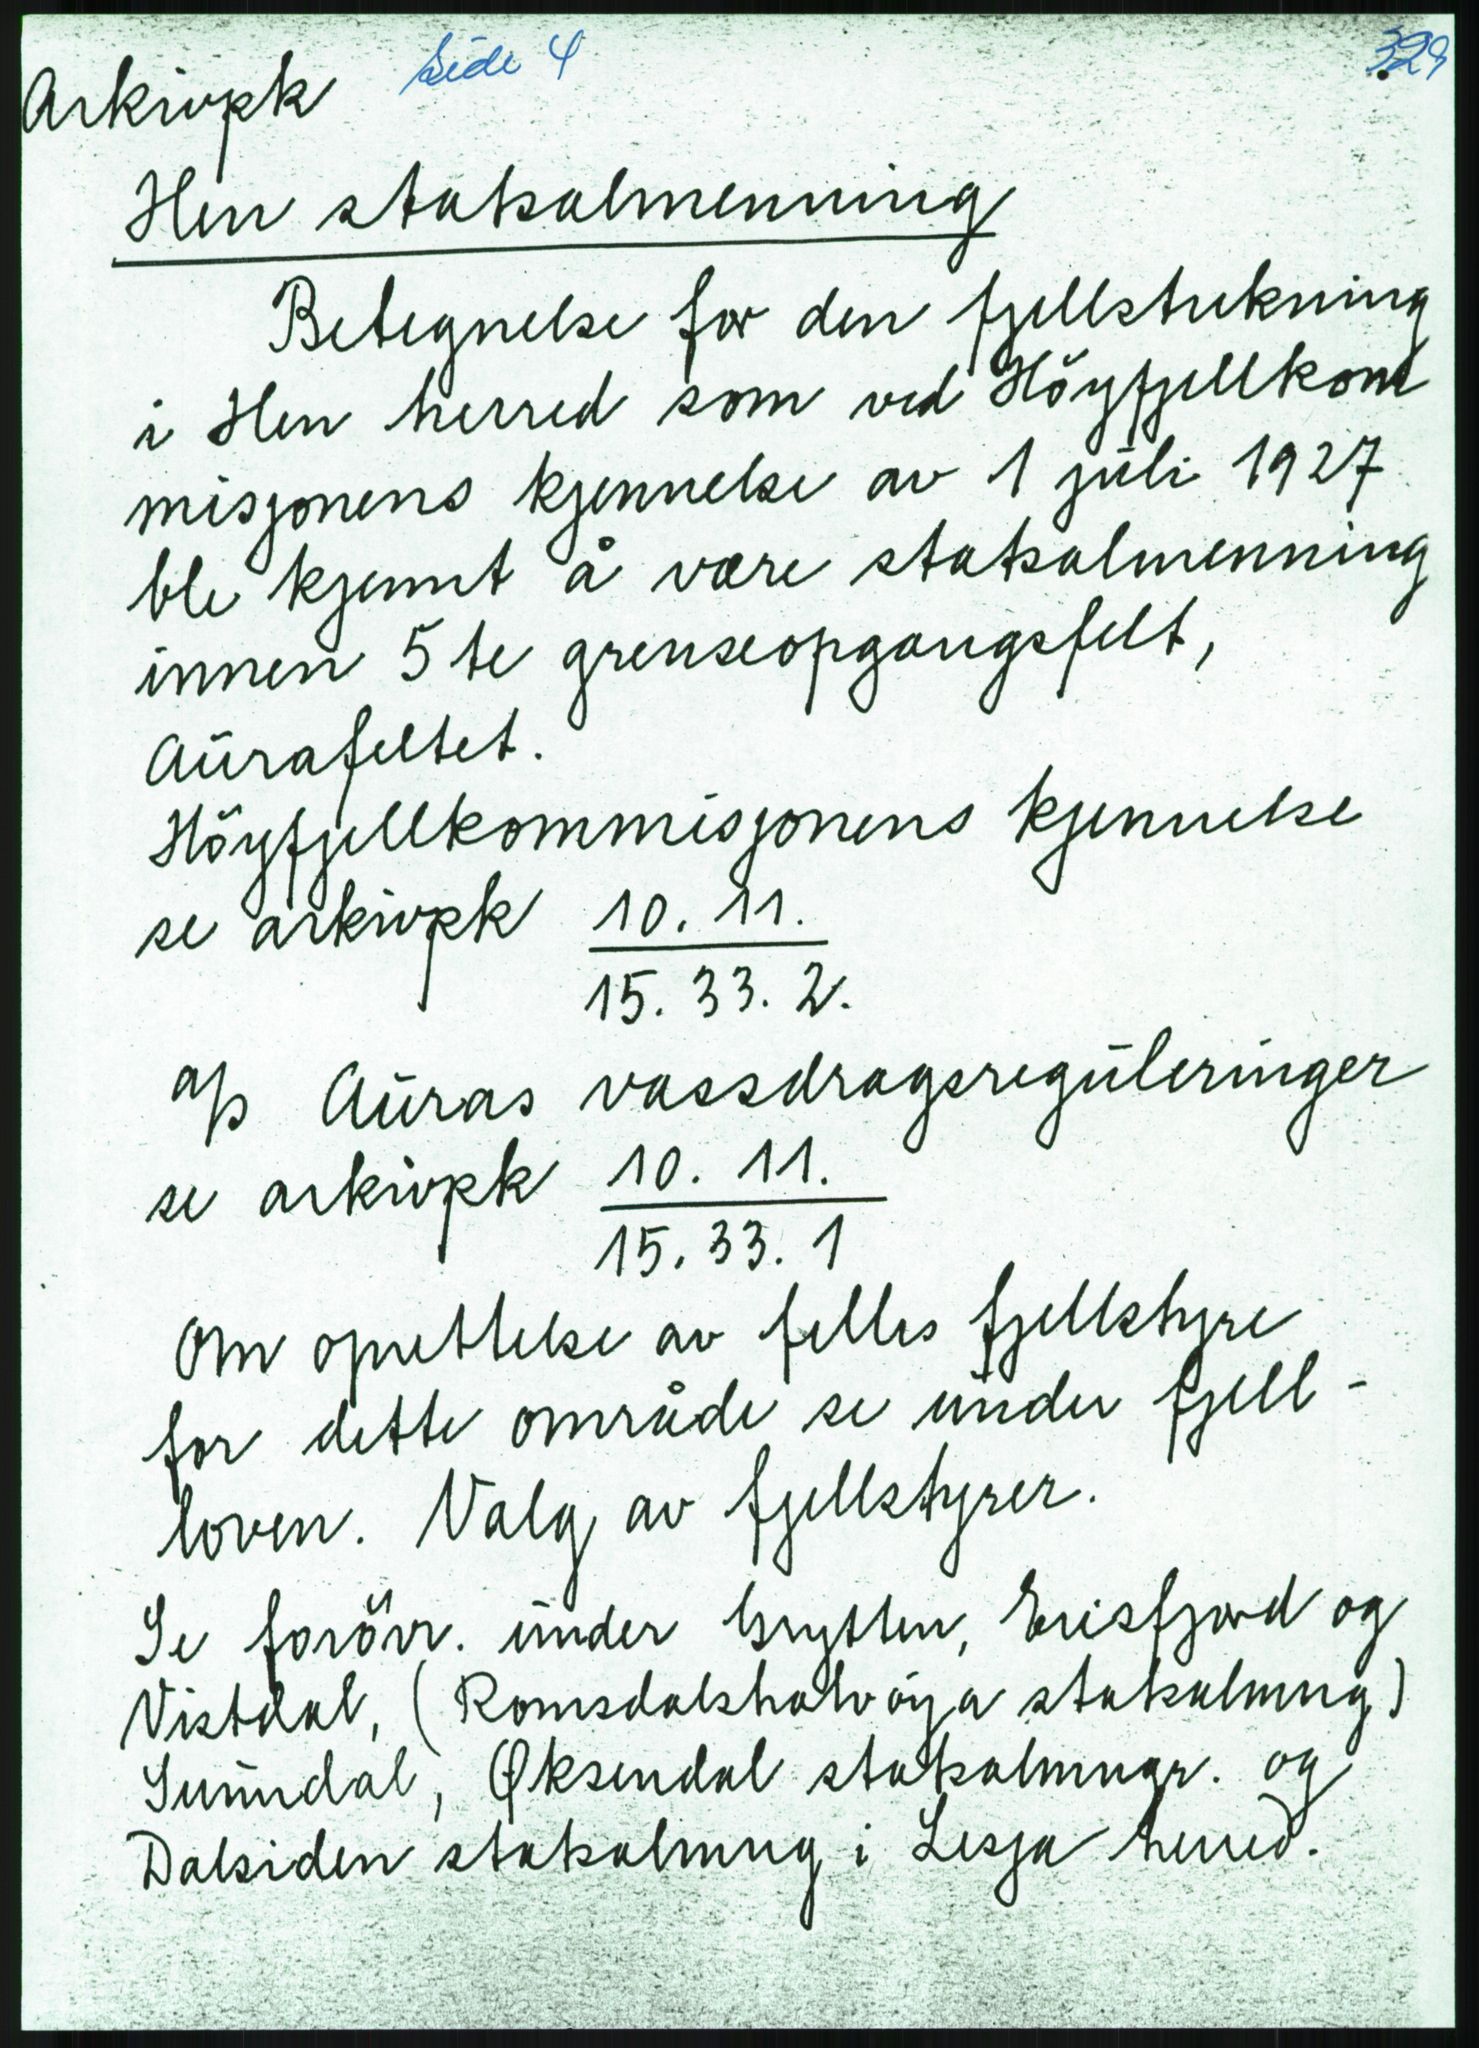 Side 4
329
Arkivpk
Hen statsalmenning
Betegnelse for den fjellstrekning
i Hen herred som ved Höyfjellkom
misjonens kjennelse av 1 juli 1927
ble kjennt å være statsalmenning
innen 5te grenseopgangsfelt,
Aurafeltet.
Höyfjellkommisjonens kjennelse
se arkivpk 10. 11.
15. 33. 2.
a/s Auras vassdragsreguleringer
se arkivpk 10. 11.
15. 33. 1
Om oprettelse av felles fjellstyre
for dette område se under fjell-
loven. Valg av fjellstyrer.
Se forövr. under Grytten, Erisfjord og
Vistdal, (Romsdalshalvöya statsalmng)
Sunndal, Øksendal statsalmngr. og
Dalsiden statsalmng i Lesja herred.